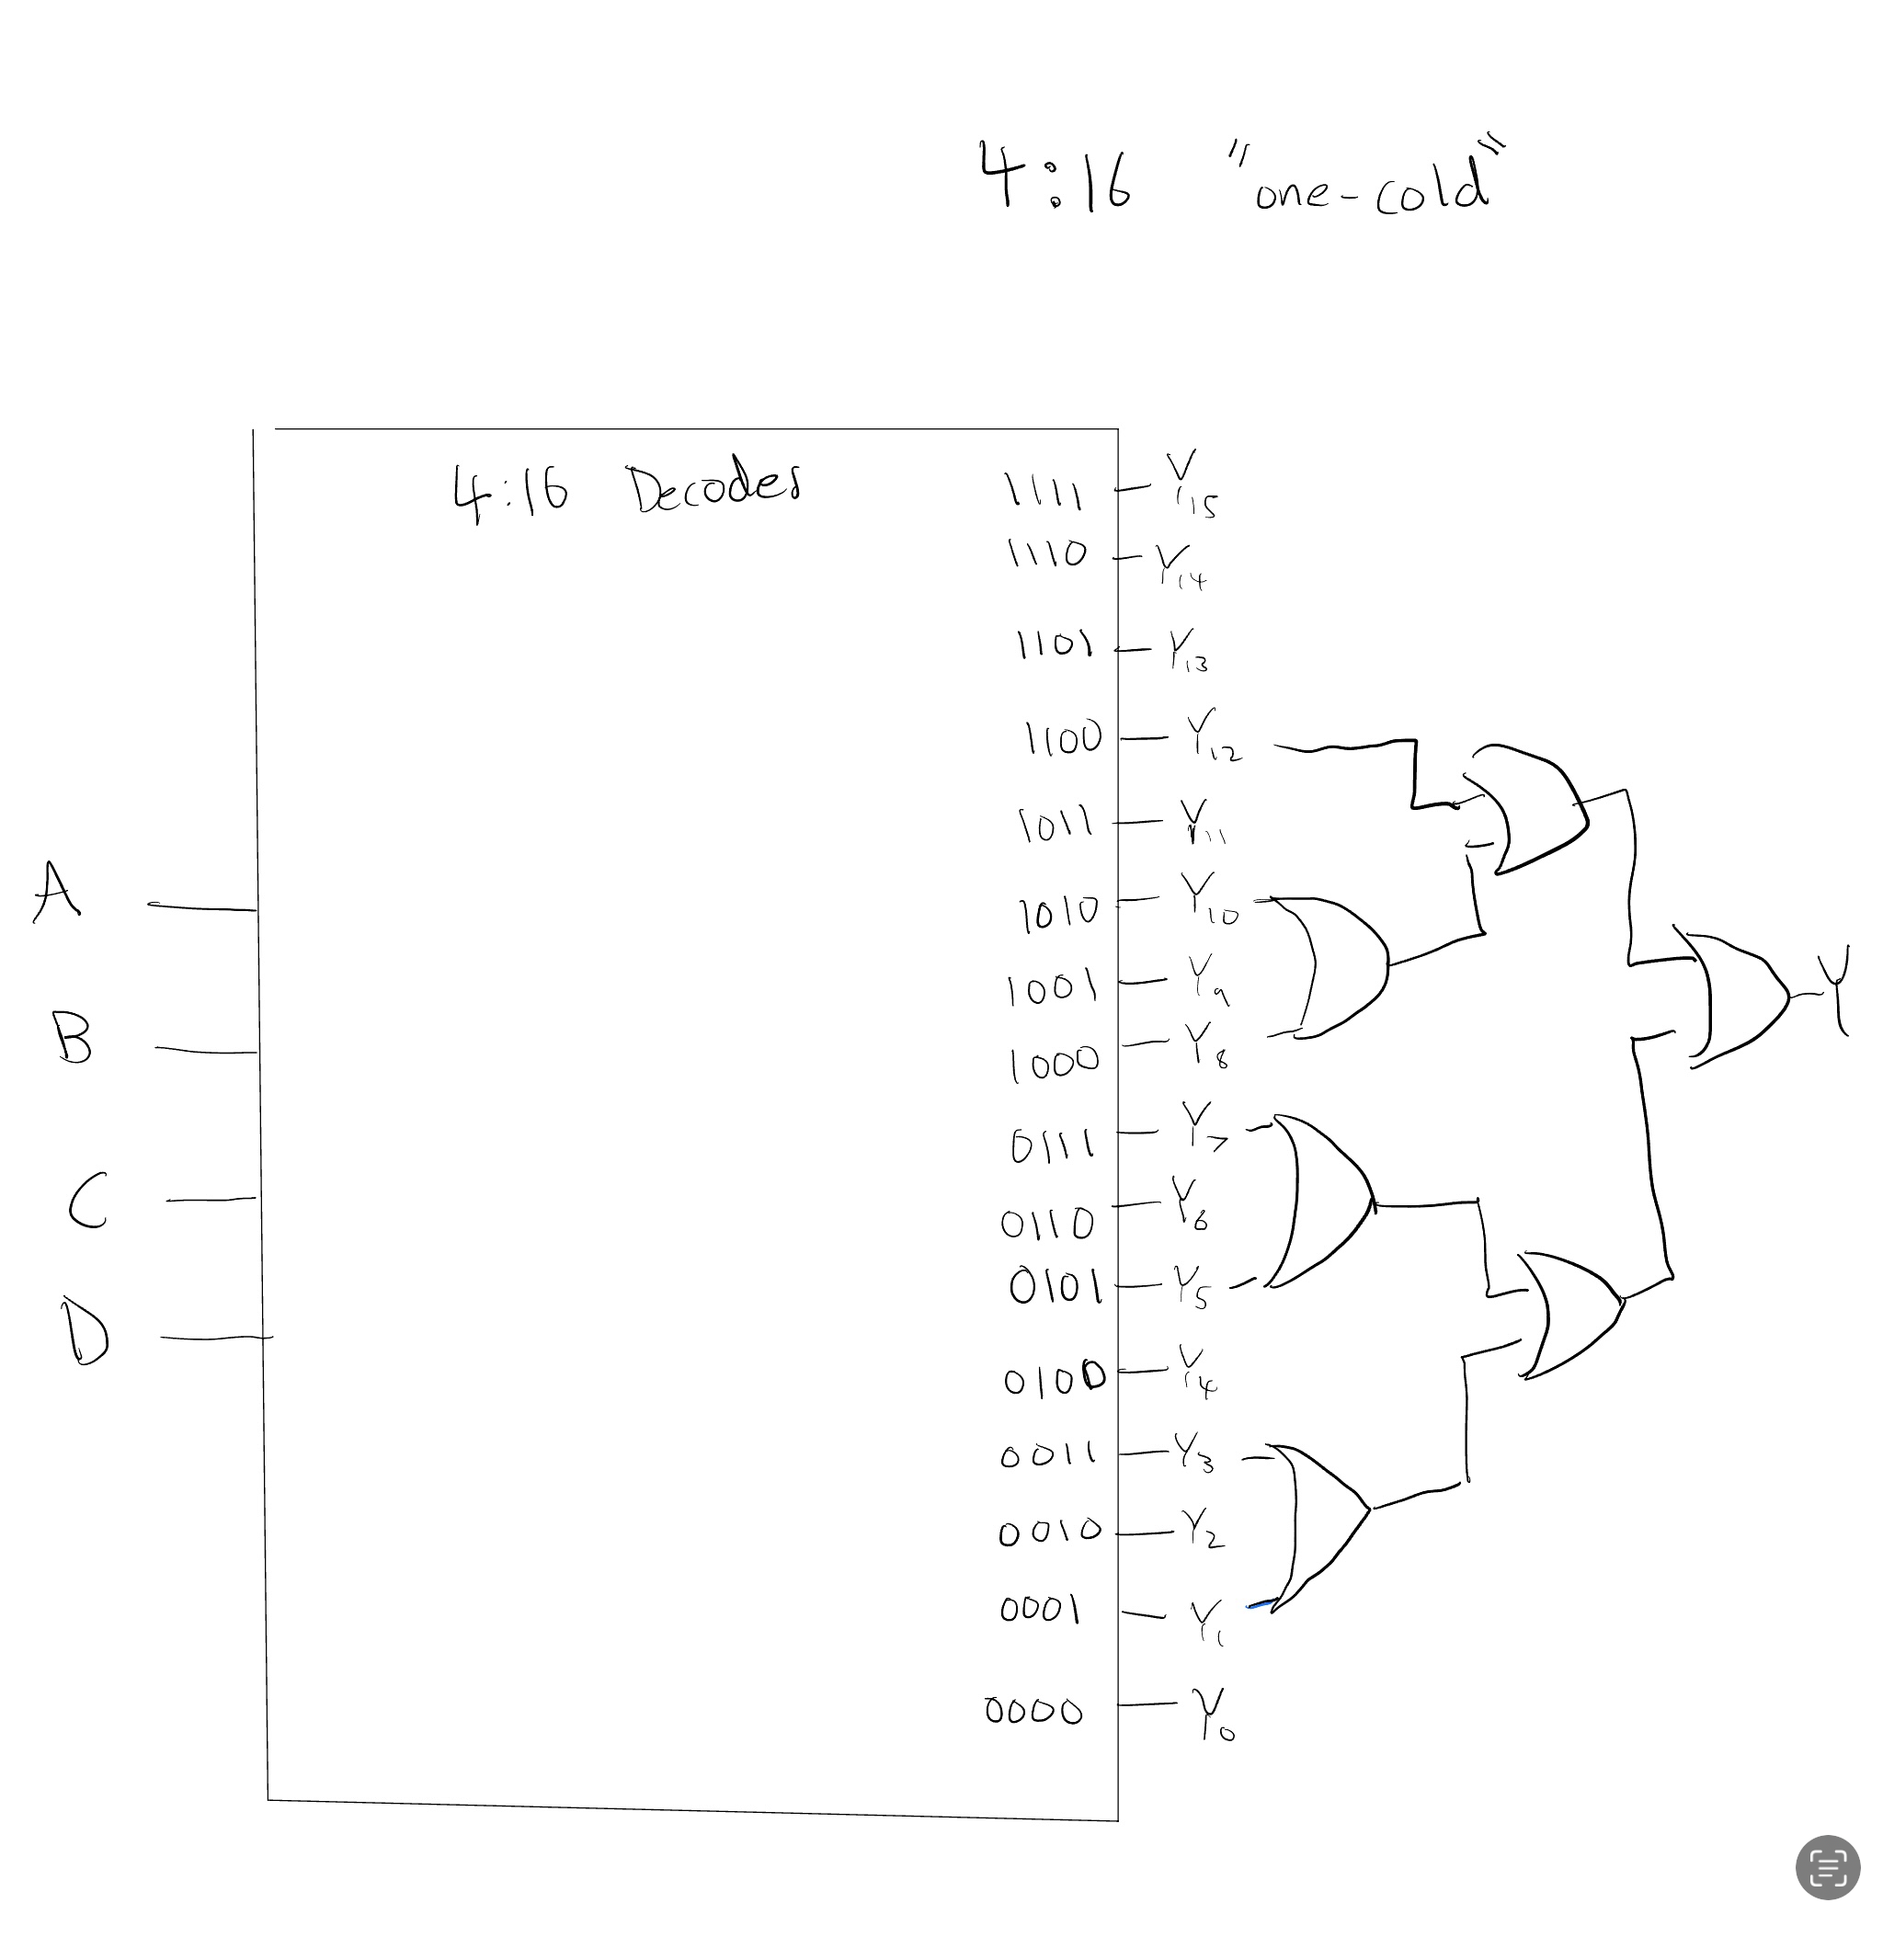 4:16 "one-cold"
4:16 Decoder
1111 Y15
1110 Y14
1101 Y13
1100 Y12
1011 Y11
A
1010 Y10
1001 Y9
Y
B
1000 Y8
0111 Y7
C
0110 Y6
0101 Y5
D
0100 Y4
0011 Y3
0010 Y2
0001 Y1
0000 Y0